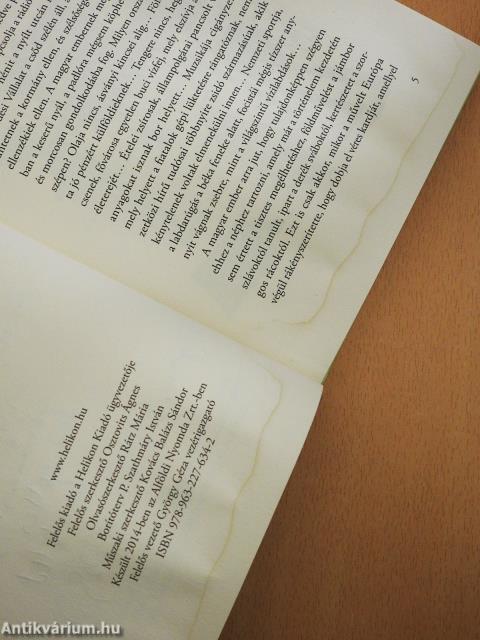 pcsolja a rádió
denüt a nyílt utcán
ési Vállalat a csőd szélén v
intenek a kormány ellen, és szükség
ellenzékiek ellen. A magyar emberek me
ban a keserű nyál, a padlóra mégsem köphe
és morcosan gondolkodóba fog. Milyen ossz
szépen? Olaj nincs, ásványi kincsei alig... Föl
ta jó pénzért külföldieknek... Tengere nincs, hegy
csenek, fővárosa egyetlen buci vízfej, mely elszívja a
életerejét... Ételei zsírosak, állampolgárai pancsolt v
anyagokat isznak bor helyett... Muzsikája cigányze
mely helyett a fiatalok gépi lüktetésre rángatóznak, nem
zetközi hírű tudósai többnyire zsidó származásúak, akik
kénytelenek voltak elmenekülni innen... Nemzeti sportja,
a labdarúgás a béka feneke alatt, focistái mégis tízszer any-
nyit vágnak zsebre, mint a világszintű vízilabdások...
A magyar ember arra jut, hogy tulajdonképpen szégyen
ehhez a néphez tartozni, amely már a történelem kezdetén
sem értett a tisztes megélhetéshez, földművelést a jámbor
szlávoktól tanult, ipart a derék sváboktól, kertészetet a szor-
gos rácoktól. Ezt is csak akkor, mikor a művelt Európa
végül rákényszerítette, hogy dobja el véres kardját, amellyel
5
www.helikon.hu
Felelős kiadó a Helikon Kiadó ügyvezetője
Felelős szerkesztő Osztovits Ágnes
Olvasószerkesztő Rátz Mária
Borítóterv P. Szathmáry István
Műszaki szerkesztő Kovács Balázs Sándor
Készült 2014-ben az Alföldi Nyomda Zrt.-ben
Felelős vezető György Géza vezérigazgató
ISBN 978-963-227-634-2
Antikvárium.hu